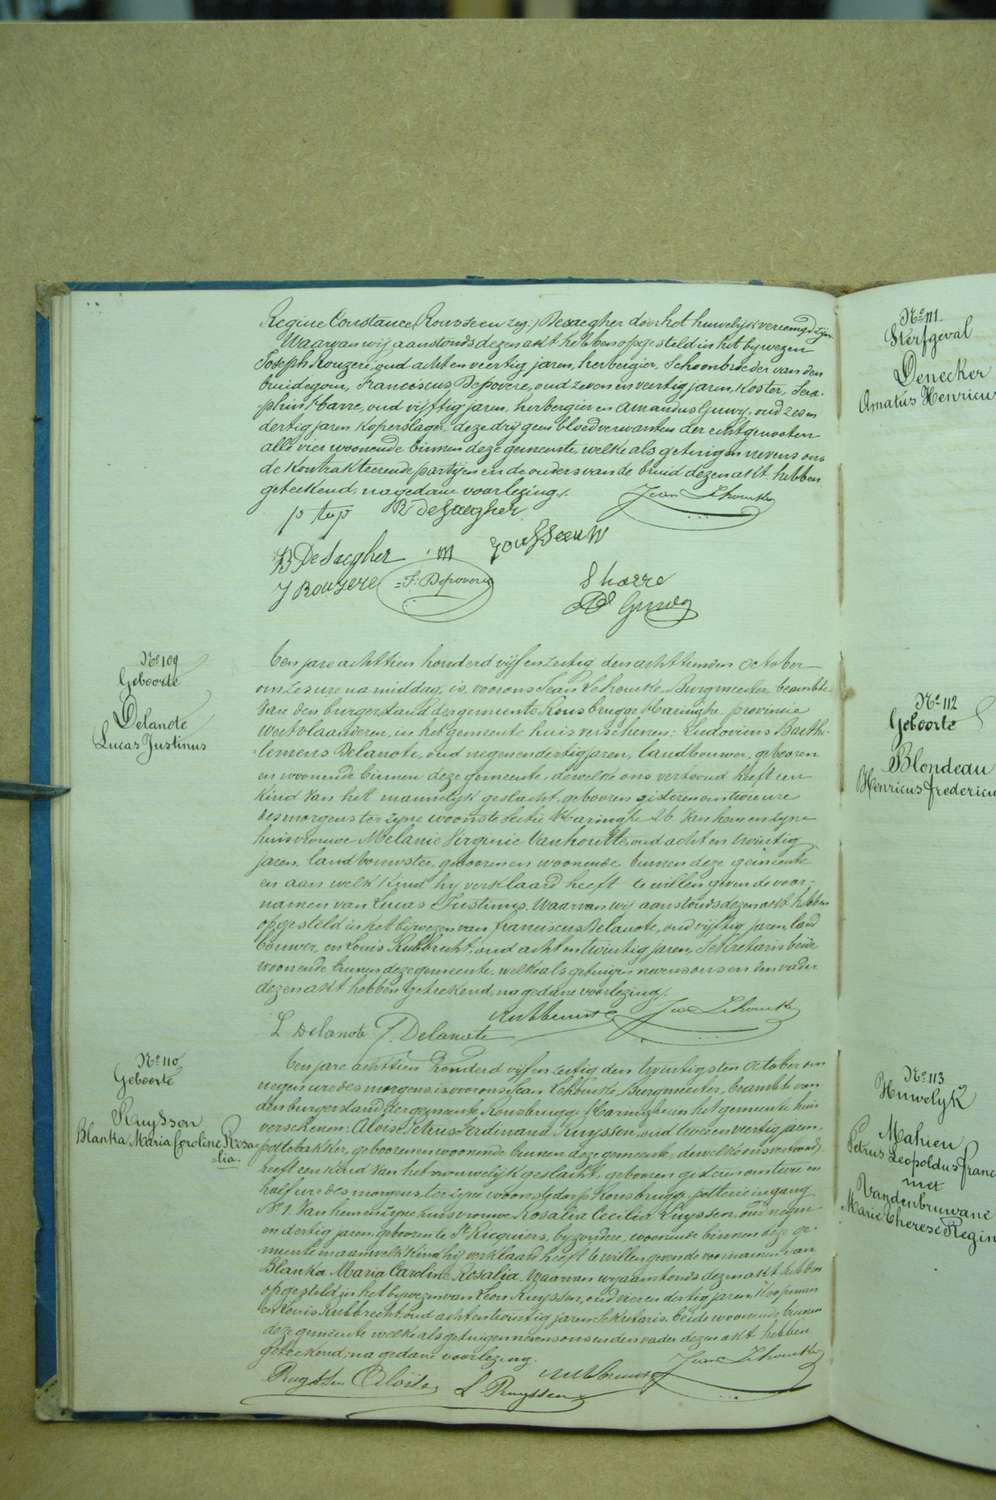 Regine Constance, Rousseeu zeg: Desaegher door het huwelijk vereenigd zijn.
Waarvan wij aanstonds dezen akt hebben opgesteld in het bijwezen
Joseph Rouzere, oud acht en veertig jaren, herbergier, Schoonbroeder van den
bruidegom, Franciscus Depovere, oud zeven en veertig jaren, Koster, Sera-
phin Harre, oud vijftig jaren, herbergier en Amandus Gruwez, oud zes en
dertig jaren Koperslager, deze drij geen bloedverwanten der echtgenooten
alle vier woonende binnen deze gemeente, welke als getuigen nevens ons
de Kontrakteerende partijen en de ouders van de bruid dezen akt hebben
geteekend, na gedane voorlezing.
p top R deSaegher
B DeSaegher m Rousseeuw
J Rouzere F: Depovere S harre
No 109
Geboorte
Delanote
Lucas Justinus
Ten jare achttien honderd vijf en zestig den achttienden October
om zes ure na middag, is, voor ons Jean Lehoucke Burgmeester beambte
van den burgerstand der gemeente Rousbrugge Haringhe provincie
Westvlaanderen, in het gemeente huis verschenen: Ludovicus Barth-
lemeus Delanote, oud negen en dertig jaren, landbouwer, geboren
en woonende binnen deze gemeente, dewelke ons vertoond heeft een
Kind van het mannelijk geslacht, geboren gisteren om twee ure
des morgens ter zijne woonste sectie Haringhe 26 van hem en zijne
huisvrouwe Melanie Virginie Vanhoutte, oud acht en twintig
jaren, landbouwster, geboren en woonende binnen deze gemeente
en aan welk Kind hy verklaard heeft te willen geven de voor-
namen van Lucas Justinus. Waarvan wij aanstonds dezen akt hebben
opgesteld in het bijwezen van franciscus Delanote, oud vijftig jaren, land
bouwer, en Louis Rubbrecht, oud acht en twintig jaren, Sekretaris beide
woonende binnen deze gemeente, welke als getuigen nevens ons en den vader
dezen akt hebben geteekend, na gedane voorlezing.
L Delanote F. Delanote
No 110
Geboorte
Ruysson
Blanka Maria Caroline Rosa-
lia.
Ten jare achttien honderd vijf en zestig den twintigsten October om
negen ure des morgens is voor ons Jean Lehoucke, Burgmeester, beambte van
den burgerstand der gemeente Rousbrugge Haringhe in het gemeente huis
verschenen: Alois Petrus Ferdinand Ruyssen, oud twee en veertig jaren,
pottebakker, geboren en woonende binnen deze gemeente, dewelke ons vertoond
heeft een Kind van het vrouwelijk geslacht, geboren gisteren om twee en
half ure des morgens ter zijne woonst dorp Rousbrugge, potterie ingang
No 1. Van hem en zijne huisvrouwe Rosalia Cecilia Luyssen, oud negen
en dertig jaren, geboren te St Ricquiers, byzondere, woonende binnen deze ge-
meente en aan welk Kind hij verklaard heeft te willen geven de voornamen van
Blanka Maria Caroline Rosalia. Waarvan wy aanstonds dezen akt hebben
opgesteld in het bijwezen van Leon Ruyssen, oud vier en dertig jaren, Koopman
en Louis Rubbrecht, oud acht en twintig jaren Sekretaris, beide woonende binnen
deze gemeente welke als getuigen nevens ons en den vader dezen akt hebben
geteekend, na gedane voorlezing.
Ruyssen Aloïs L Ruyssen
No 111.
Sterfgeval
Denecker
Amatus Henricus
No 112
Geboorte
Blondeau
Henricus fredericu
No 113
Huwelyk
Mahieu
Petrus Leopoldus franc
met
Vandenbruwane
Marie Therese Regin